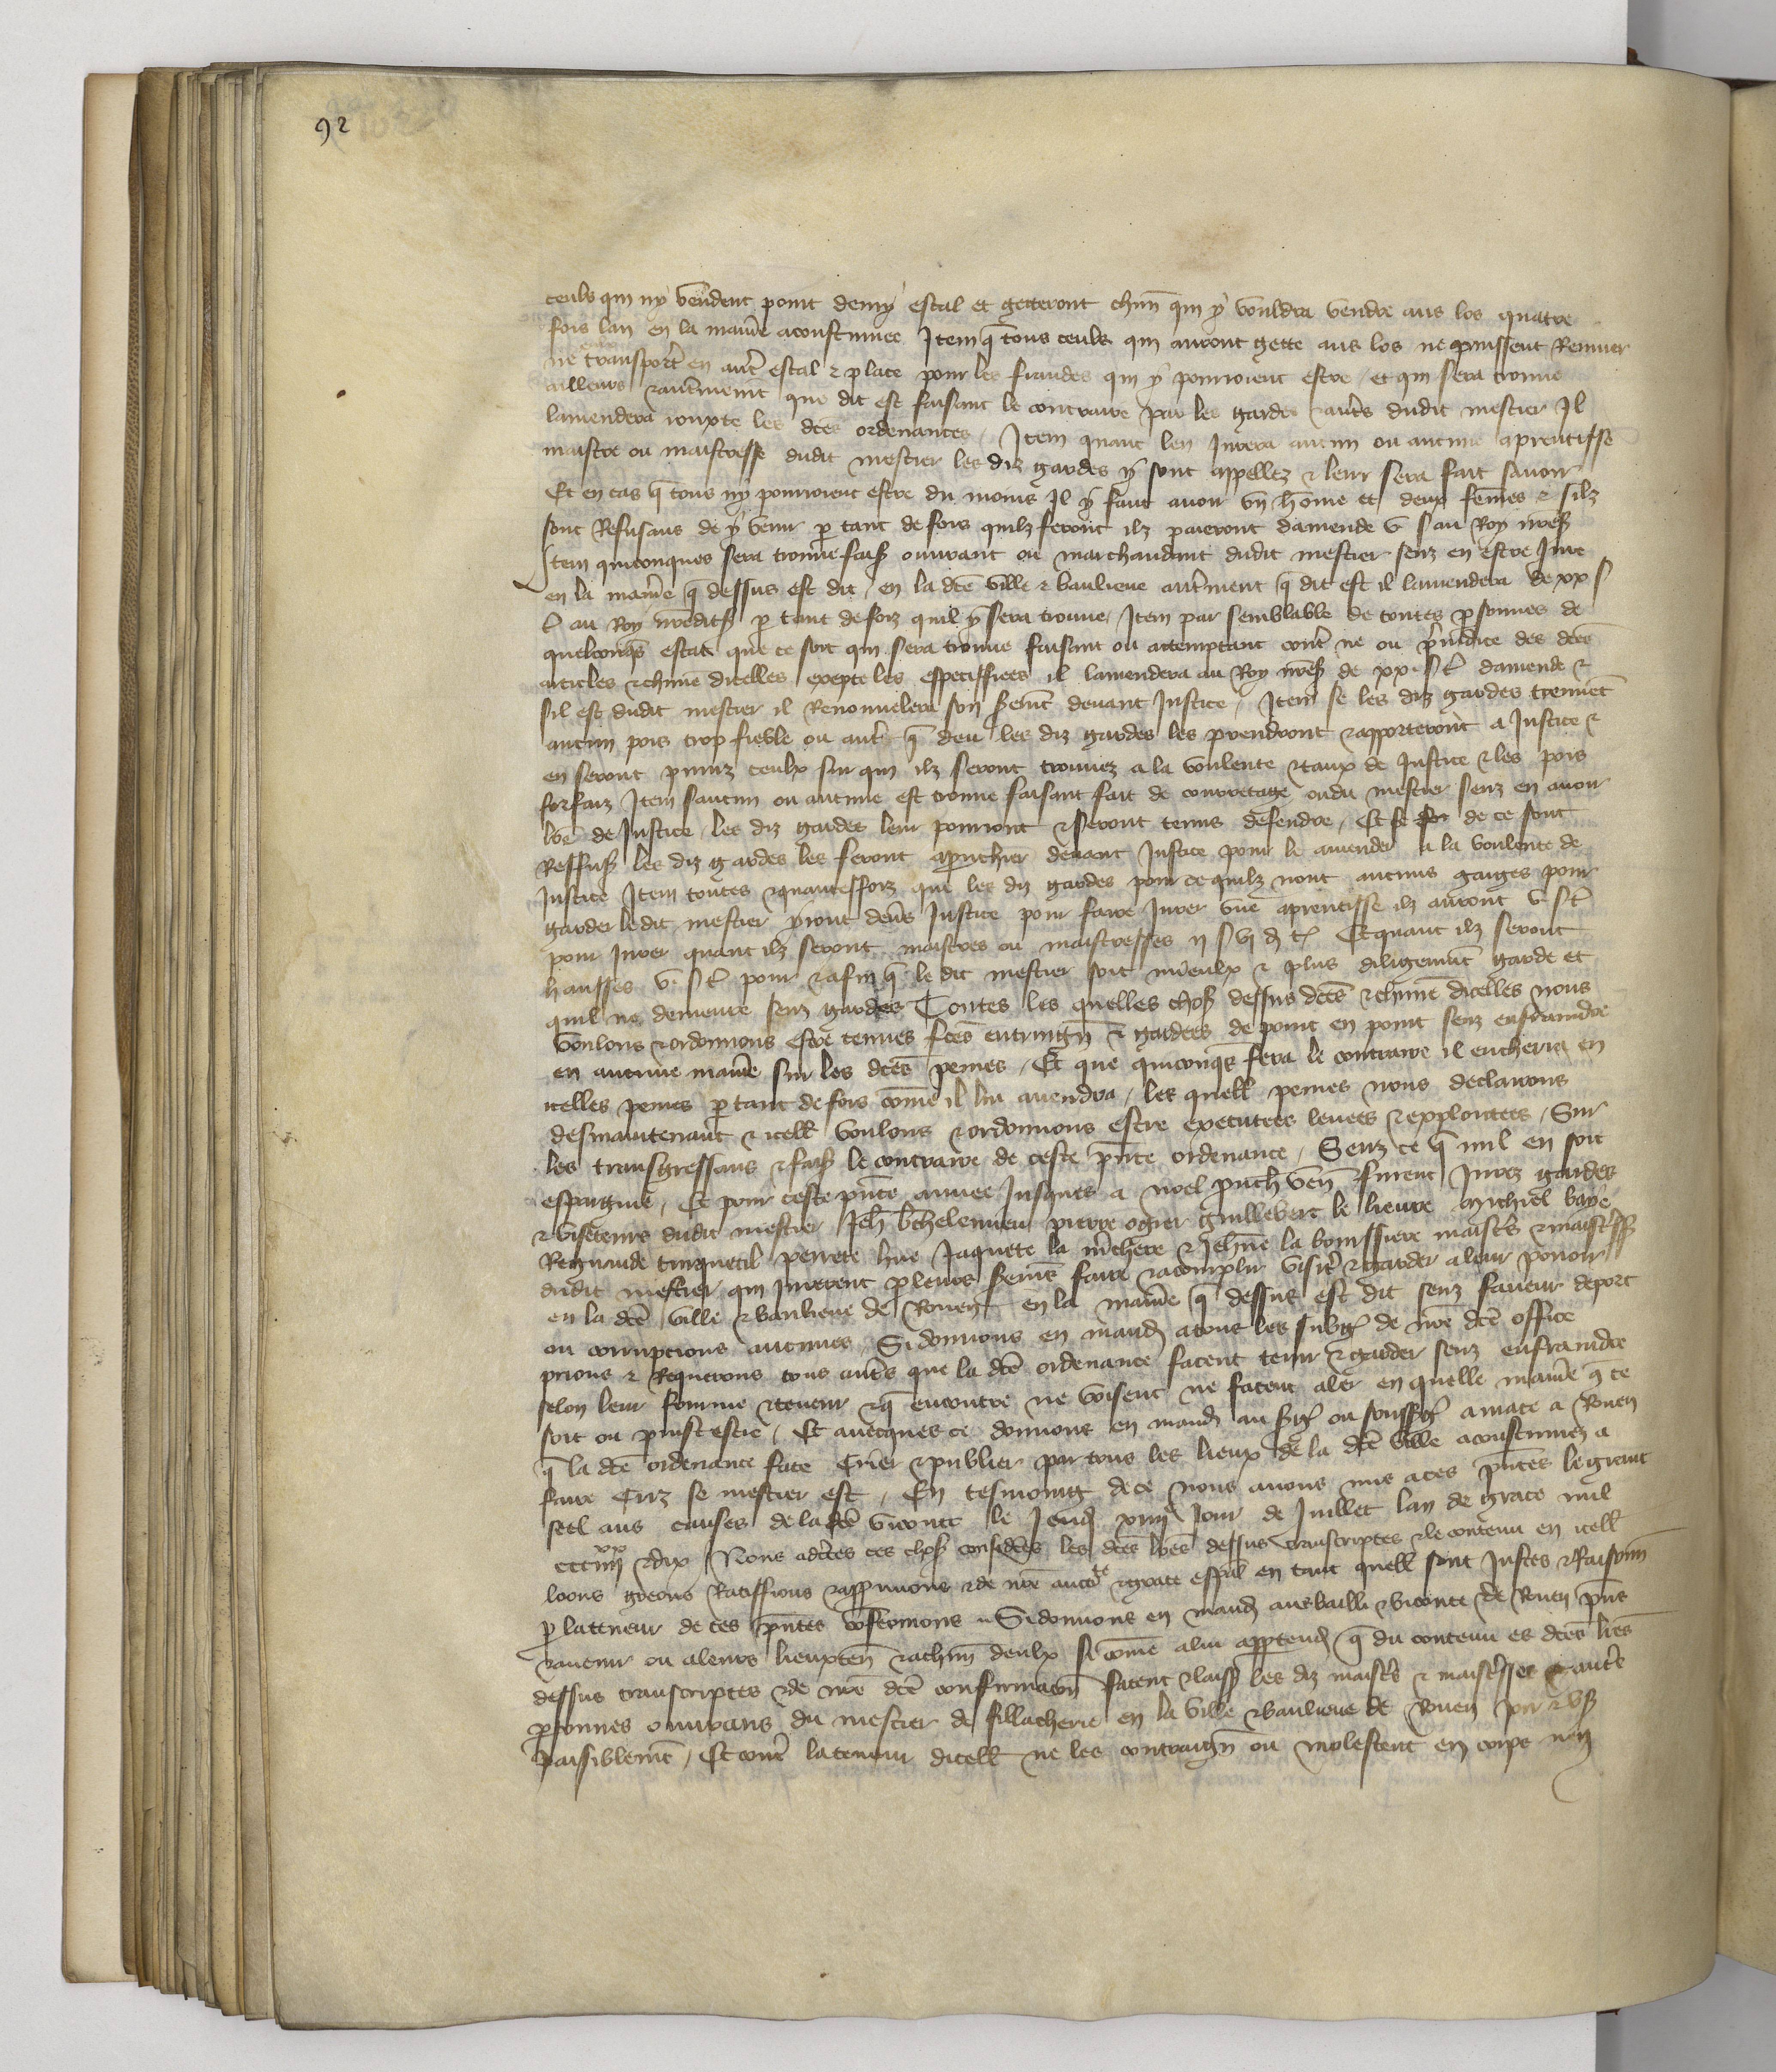 92
ceulx qui ny vendent point demy estal et getteront chūn qui y vouldra vendre aus los quatre
fois lan en la maniē acoustumee Item q̄ tous ceulx qui auront gette aus los ne puissent Remuer
ne transport en autr̄ estal & place pour les fraudes qui y pourroient estre / et qui sera trouue
ailleurs & autrement que dit est faisant le contraire par les gardes & autrs dudit mestier Il
lamendera iouxte les dc̄es ordenances / Item quant len Iurera aucun ou aucune aprentisse
maistre ou maistresse dudit mestier les diz gardes y sont appellez & leur sera fait sauoir
Et en cas q̄ tous ny pourroient estre du moins Il y faut auoir vn hōme et deux fēmes & silz
sont Refusans de y venir p tant de fois quilz feront ilz paieront damende v s au Roy nr̄e s
Item quiconques sera trouue fais ouurant ou marchandant dudit mestier senz en estre Iure
en la maniē q̄ dessus est dit / en la dc̄e ville & banlieue autrment q̄ dit est il lamendera de xx s
t au Roy nr̄edit s p tant de foiz quil y sera trouue / Item par semblable de toutes psonnes de
quelconq̄s estat que ce soit qui sera trouue faisant ou attemptant contr ne ou preiudice des dc̄es
articles & chūne dicelles exepte les especiffiees il lamendera au Roy nr̄e s de xx s t damende &
sil est dudit mestier il Renouuelera son sermt deuant Justice / Item se les diz gardes treuuēt
aucun pois trop fieble ou autr q̄ deu les diz gardes les prendront & apporteront a Justice &
en seront puniz ceulx sur qui ilz seront trouuez a la voulente & taux de Justice & les pois
forfaiz Item saucun ou aucune est trouue faisant fait de courretage ou du mestier senz en auoir
lr̄e de Justice / les diz gardes leur pourront & seront tenus defendre / Et se de ce sont
Reffus les diz gardes les feront aprouchier deuant Justice pour le amender a la voulente de
Justice Item toutes & quantesfoiz que les diz gardes pour ce quilz nont aucuns gaiges pour
garder ledit mestier yront deūs Justice pour faire Iurer vne aprentisse ilz auront v s t
pour Iurer quant ilz seront maistres ou maistresses ij s vj d t Et quant ilz seront
hausses v s t pour & afin q̄ le dit mestier soit mieulx & plus diligemmt garde et
quil ne demeure senz gardes Toutes les quelles chos dessus dc̄es & chūne dicelles nous
Voulons & ordonnons estre tenues fc̄es enterign & gardees de point en point senz enfraindre
en aucune maniē sur les dc̄es peines / Et que quiconq̄s fera le contraire il encherra en
icelles peines p tant de fois cōme il lui auendra / les quell peines nous declairons
desmaintenant & icell voulons & ordonnons estre executees leuees & exploittees / Sur
les transgressans & fais le contraire de ceste pn̄te ordenance / Senz ce q̄ nul en soit
espargnie / Et pour ceste pn̄te annee Iusques a noel prouch ven furent Iurez gardes
& visiteurs dudit mestier Jeh bthelemieu pierre ogier guillebert le lieure Michiel baye
Regnaude turquetil perrete hue Jaquete la mchere & Jehn̄e la boursiere maistrs & maistress
dudit mestier qui Iurerent p leurs sermēs faire & acomplir visit & garder a leur pouoir
en la dc̄e ville & banlieue de Rouen en la maniē q̄ dessus est dit senz faueur deport
ou corrupcions aucunes Si donnons en mand a tous les subg de nr̄e dc̄e office
prions & Requerons tous autrs que la dc̄e ordenance facent tenir & garder senz enfraindre
selon leur fourme & teneur & q̄ encontre ne voisent ne facent aler en quelle maniē q̄ ce
soit ou puist estre / Et auecques ce donnons en mand au sg ou soussg a mace a Rouen
q̄ la dc̄e ordenance face Crier & publier par tous les lieux de la dc̄e ville acoustumez a
faire Criz se mestier est / En tesmoing de ce nous auons mis a ces pn̄tes le grant
seel aus causes de la dc̄e viconte le Jeud xiiij Iour de Juillet lan de grace mil
ccc iiij xx & dix Nous adc̄tes ces chos considerees les dc̄es lr̄es dessus transcriptes & le contenu en icell
loons greons Ratiffions & approuuons & de nr̄e auctote & grace espal en tant quell sont Justes & Raisonn
p la teneur de ces pn̄tes confermons Si donnons en mand aus bailli & viconte de Rouen pn̄s
& auenir ou a leurs lieuxten & a chūn deulx si cōme a lui appartend q̄ du contenu es dc̄es lr̄es
dessus transcriptes & de nr̄e dc̄e confirmacōn facent & laiss les diz maistrs & maistrsses & autrs
psonnes ouurans du mestier de fillacherie en la ville & banlieue de Rouen Joir & vs
paisiblemt / Et contr la teneur dicell ne les contraign ou molestent en corps ney